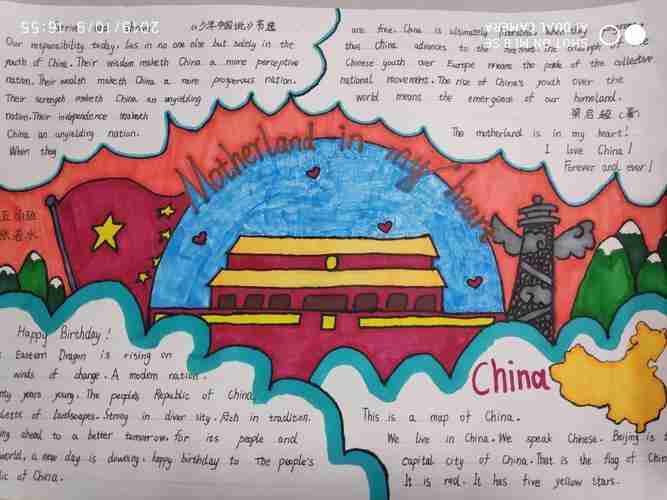 《少年中国说》节选
Our responsibility today, lies in no one else but solely in the
youth of China. Their wisdom maketh China a more perceptive
nation. Their wealth maketh China a more prosperous nation.
Their strength maketh China an unyielding
nation. Their independence maketh
China an unyielding nation.
When they
are free. China is ultimately
thus China advances to the
Chinese youth over Europe means the peak of the collective
national movement. The rise of China's youth over the
world means the emergence of our homeland.
梁启超（著）
The motherland is in my heart!
I love China!
Forever and ever!
Motherland in my heart
Happy Birthday!
Eastern Dragon is rising on
winds of change. A modern nation.
years young. The people's Republic of China
of landscapes. Strong in diversity. Rich in tradition.
ahead to a better tomorrow, for its people and
world, a new day is dawning. happy birthday to The people's
of China.
China
This is a map of China.
We live in China. We speak Chinese. Beijing is
capital city of China. That is the flag of
It is red. It has five yellow stars.
2019/10/9 16:55
SHOT ON MI 8 SE
AI DUAL CAMERA